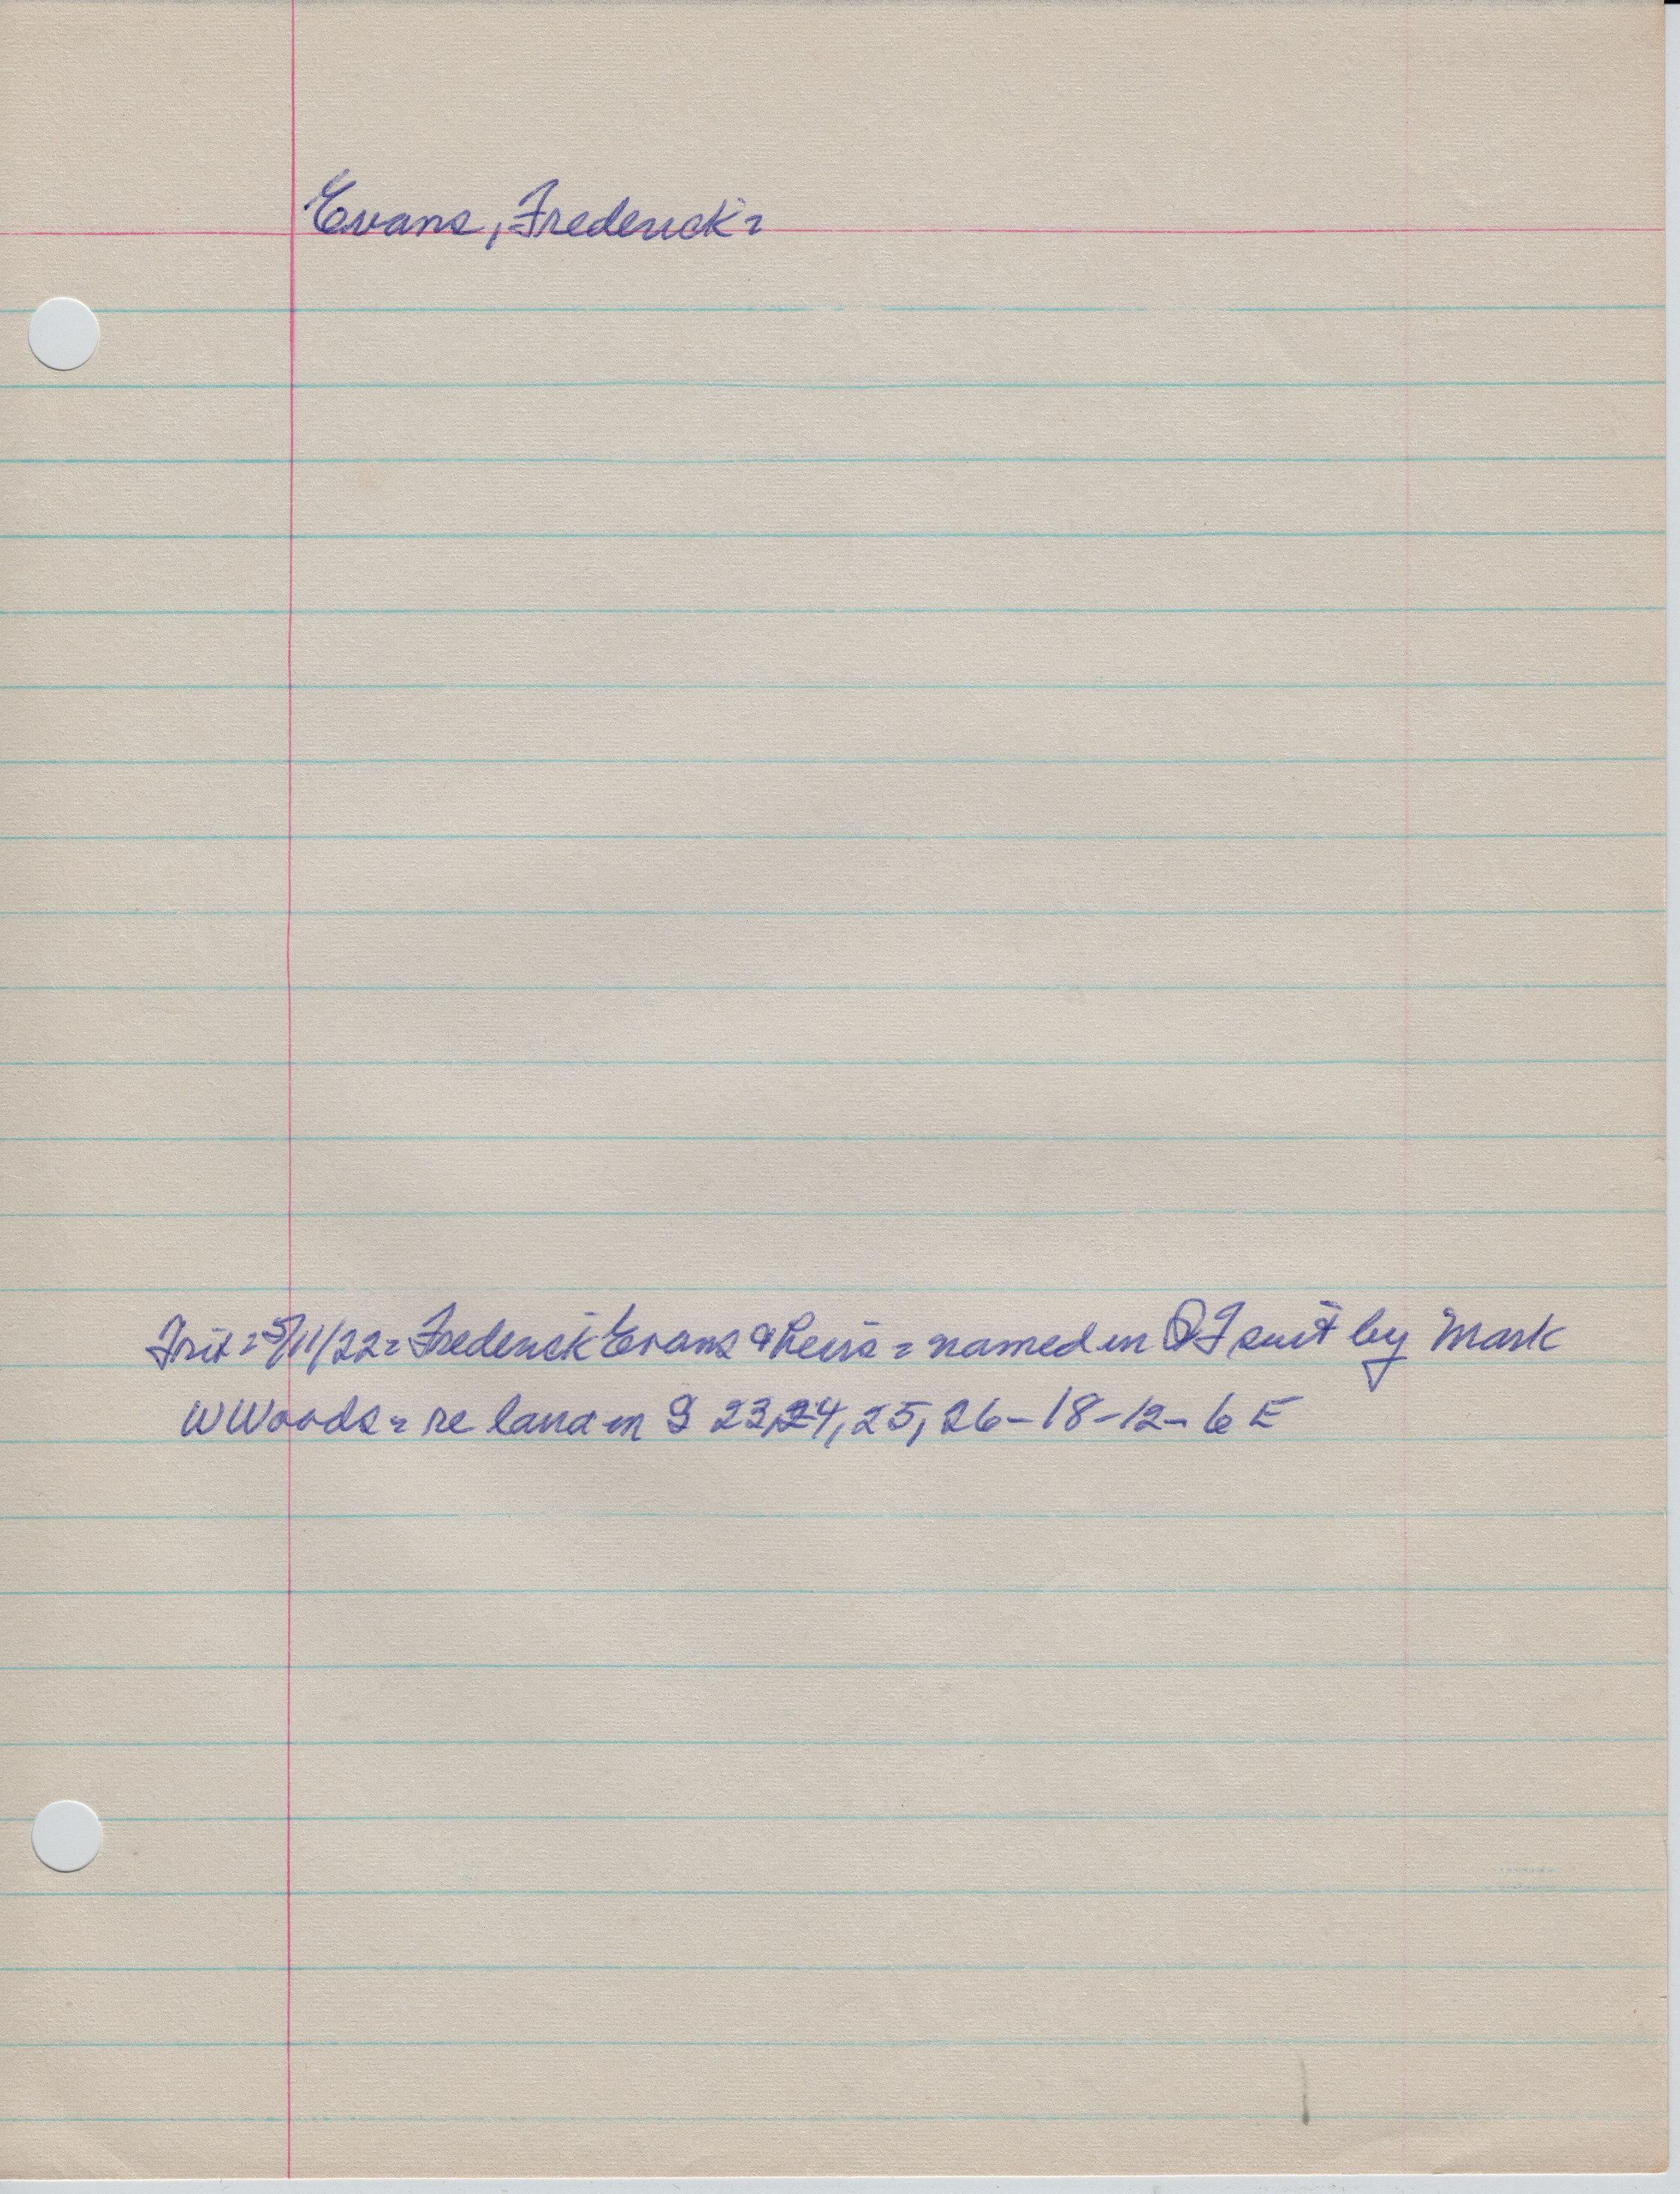 Evans, Frederick =
Trib = 5/11/22 = Frederick Evans & heirs = named in QT suit by Mark
W Woods = re land in S 23, 24, 25, 26 - 18 - 12 - 6 E